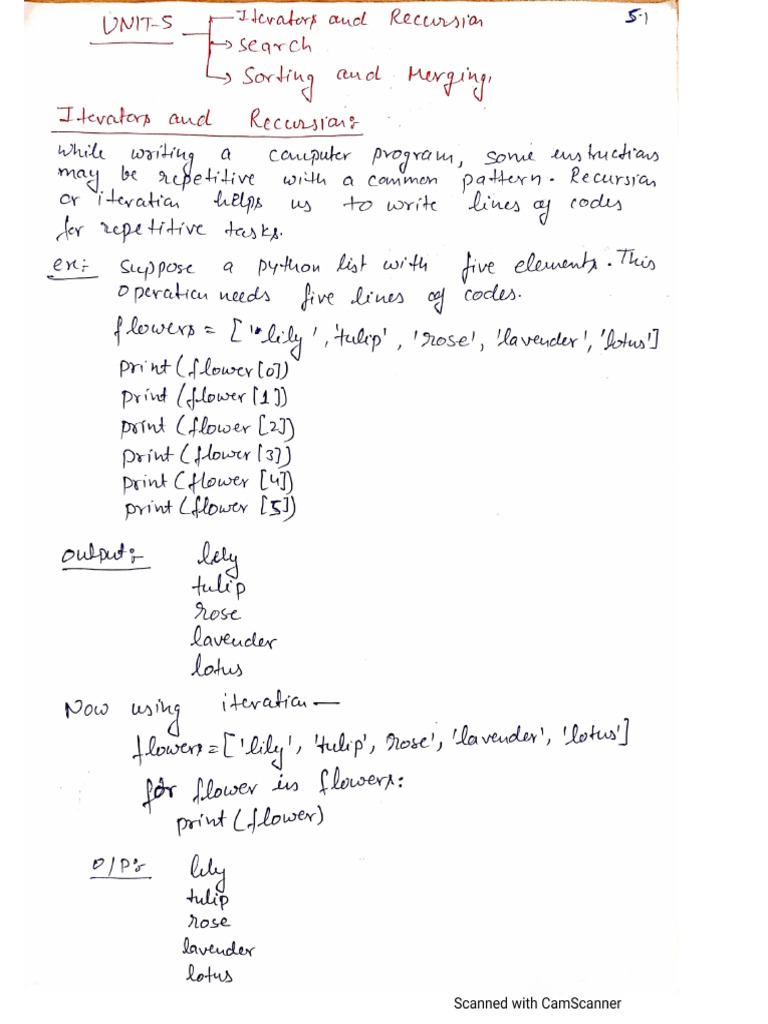 UNIT-5 → Iterators and Recursion 5.1
→ search
→ Sorting and Merging,
Iterators and Recursion:
While writing a computer program, some instructions
may be repetitive with a common pattern. Recursion
or iteration helps us to write lines of codes
for repetitive tasks.
ex:- suppose a python list with five elements. This
operation needs five lines of codes.
flowers = ['lily', 'tulip', 'rose', 'lavender', 'lotus']
print(flower[0])
print(flower[1])
print(flower[2])
print(flower[3])
print(flower[4])
print(flower[5])
output:- lily
tulip
rose
lavender
lotus
Now using iteration—
flowers=['lily', 'tulip', rose', 'lavender', 'lotus']
for flower in flowers:
print(flower)
O/P:- lily
tulip
rose
lavender
lotus
Scanned with CamScanner